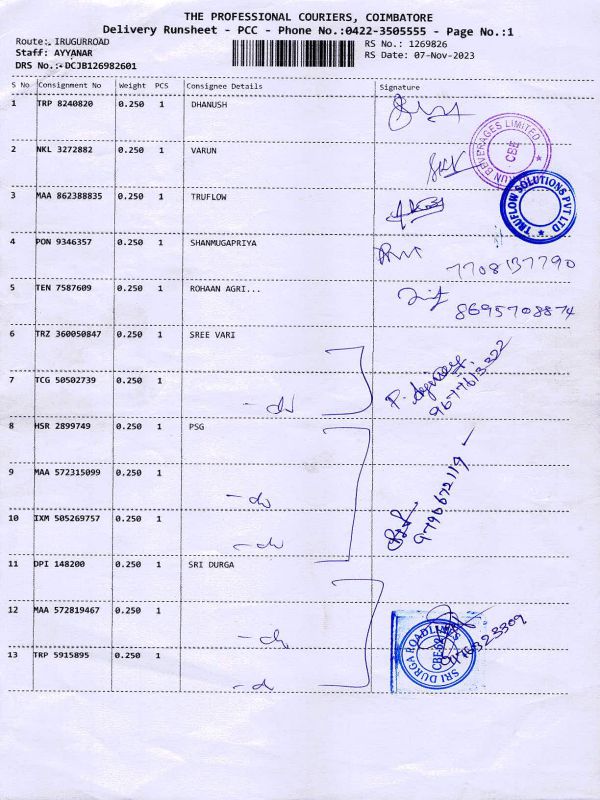 THE PROFESSIONAL COURIERS, COIMBATORE
Delivery Runsheet - PCC - Phone No.:0422-3505555 - Page No.:1
Route: IRUGURROAD
Staff: AYYANAR
DRS No.:-DCJB126982601
RS No.: 1269826
RS Date: 07-Nov-2023
S No Consignment No Weight PCS Consignee Details Signature
1 TRP 8240820 0.250 1 DHANUSH
2 NKL 3272882 0.250 1 VARUN
BEVERAGES LIMITED
CBE
3 MAA 862388835 0.250 1 TRUFLOW
TRUFLOW SOLUTIONS PVT LTD
4 PON 9346357 0.250 1 SHANMUGAPRIYA
7708137790
5 TEN 7587609 0.250 1 ROHAAN AGRI...
8695708874
6 TRZ 360050847 0.250 1 SREE VARI
7 TCG 50502739 0.250 1 -do
9677613322
8 HSR 2899749 0.250 1 PSG
9 MAA 572315099 0.250 1 -do
10 IXM 505269757 0.250 1 -do
9790672119
11 DPI 148200 0.250 1 SRI DURGA
12 MAA 572819467 0.250 1 -do
13 TRP 5915895 0.250 1 -do
SRI DURGA ROADLINES